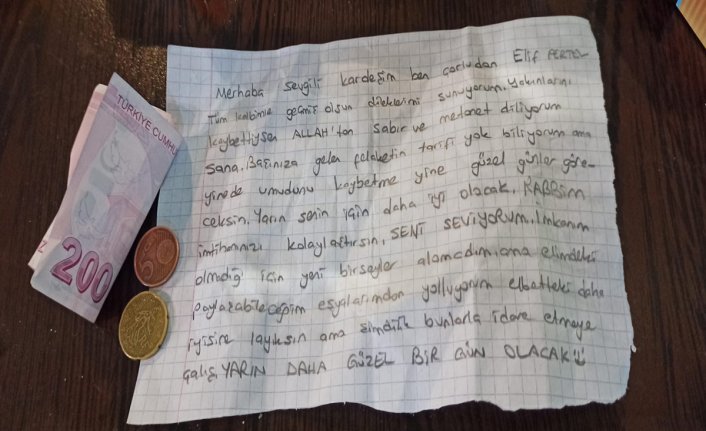 TÜRKİYE CUMHU
200
Merhaba sevgili kardeşim ben Çorludan Elif
Tüm kalbimle geçmiş olsun dileklerimi sunuyorum. Yakınlarını
kaybettiysen ALLAH'tan sabır ve metanet diliyorum
sana. Başınıza gelen felaketin tarifi yok biliyorum ama
yinede umudunu kaybetme yine güzel günler göre-
ceksin. Yarın senin için daha iyi olacak. RABBİM
imtihanınızı kolaylaştırsın, SENİ SEVİYORUM. İmkanım
olmadığı için yeni birşeyler alamadım ama elimdeki
paylaşabileceğim eşyalarımdan yolluyorum elbetteki daha
iyisine layıksın ama şimdilik bunlarla idare etmeye
çalış YARIN DAHA GÜZEL BİR GÜN OLACAK